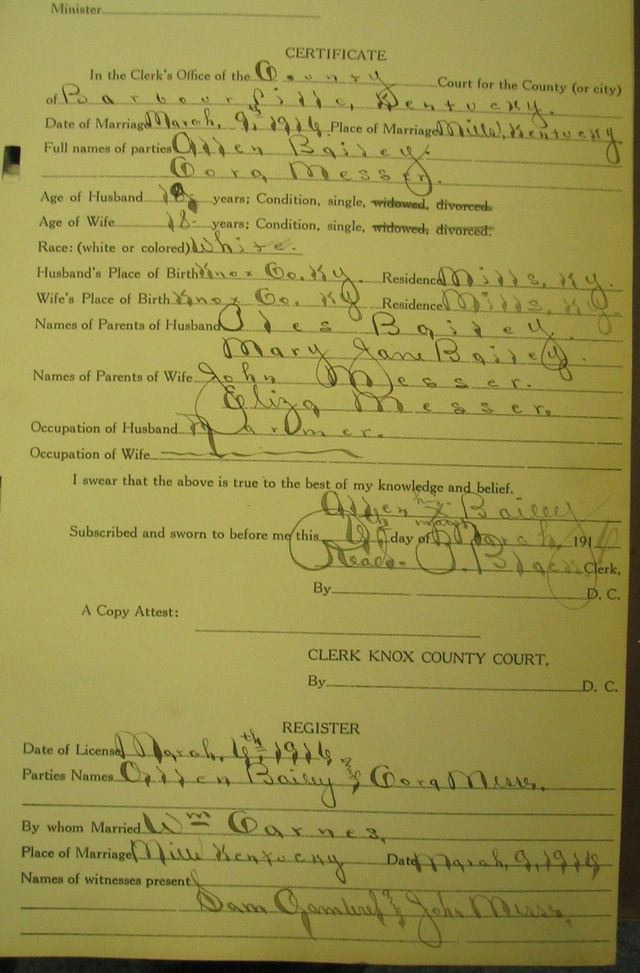 Minister
CERTIFICATE
In the Clerk's Office of the County Court for the County (or city)
of Barbourville, Kentucky.
Date of Marriage March, 9th 1916 Place of Marriage Mills, Kentucky
Full names of parties Bailey.
Cora Messer.
Age of Husband years; Condition, single, widowed, divorced.
Age of Wife 18 years; Condition, single, widowed, divorced.
Race: (white or colored) White.
Husband's Place of Birth Knox Co. Ky. Residence Mills, Ky.
Wife's Place of Birth Knox Co. Ky Residence Mills, Ky.
Names of Parents of Husband Bailey.
Mary Jane Bailey.
Names of Parents of Wife John Messer.
Eliza Messer.
Occupation of Husband Farmer.
Occupation of Wife
I swear that the above is true to the best of my knowledge and belief.
his
x Bailey
mark
Subscribed and sworn to before me this day of March 1916
Read. Clerk,
By D. C.
A Copy Attest:
CLERK KNOX COUNTY COURT.
By D. C.
REGISTER
Date of License March, 6th 1916,
Parties Names Bailey & Cora Messr.
By whom Married Wm Carnes,
Place of Marriage Mills Kentucky Date March, 9, 1916
Names of witnesses present
Sam & John Messr.